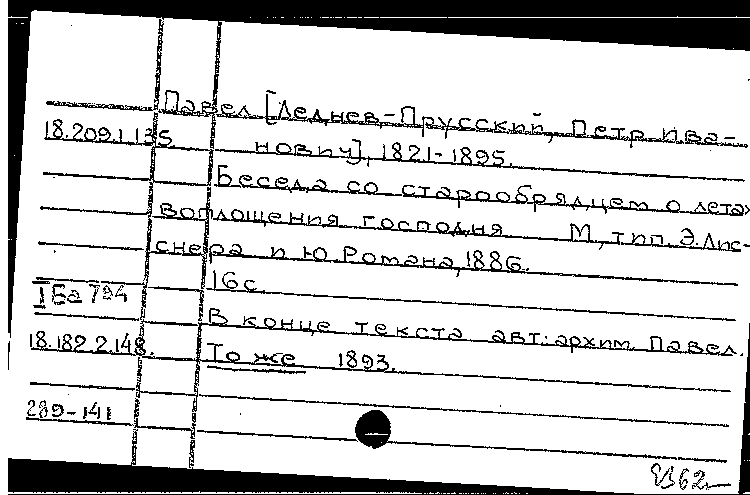 Павел [Леднев-Прусский, Петр Ива-
18.209.1.135 нович], 1821-1895.
Беседа со старообрядцем о летах
воплощения господня М., тип. Э. Лис-
снера и Ю. Романа, 1886.
16 с.
I Ба 794
В конце текста авт.: архим. Павел.
18.182.2.148. То же 1893.
289-141